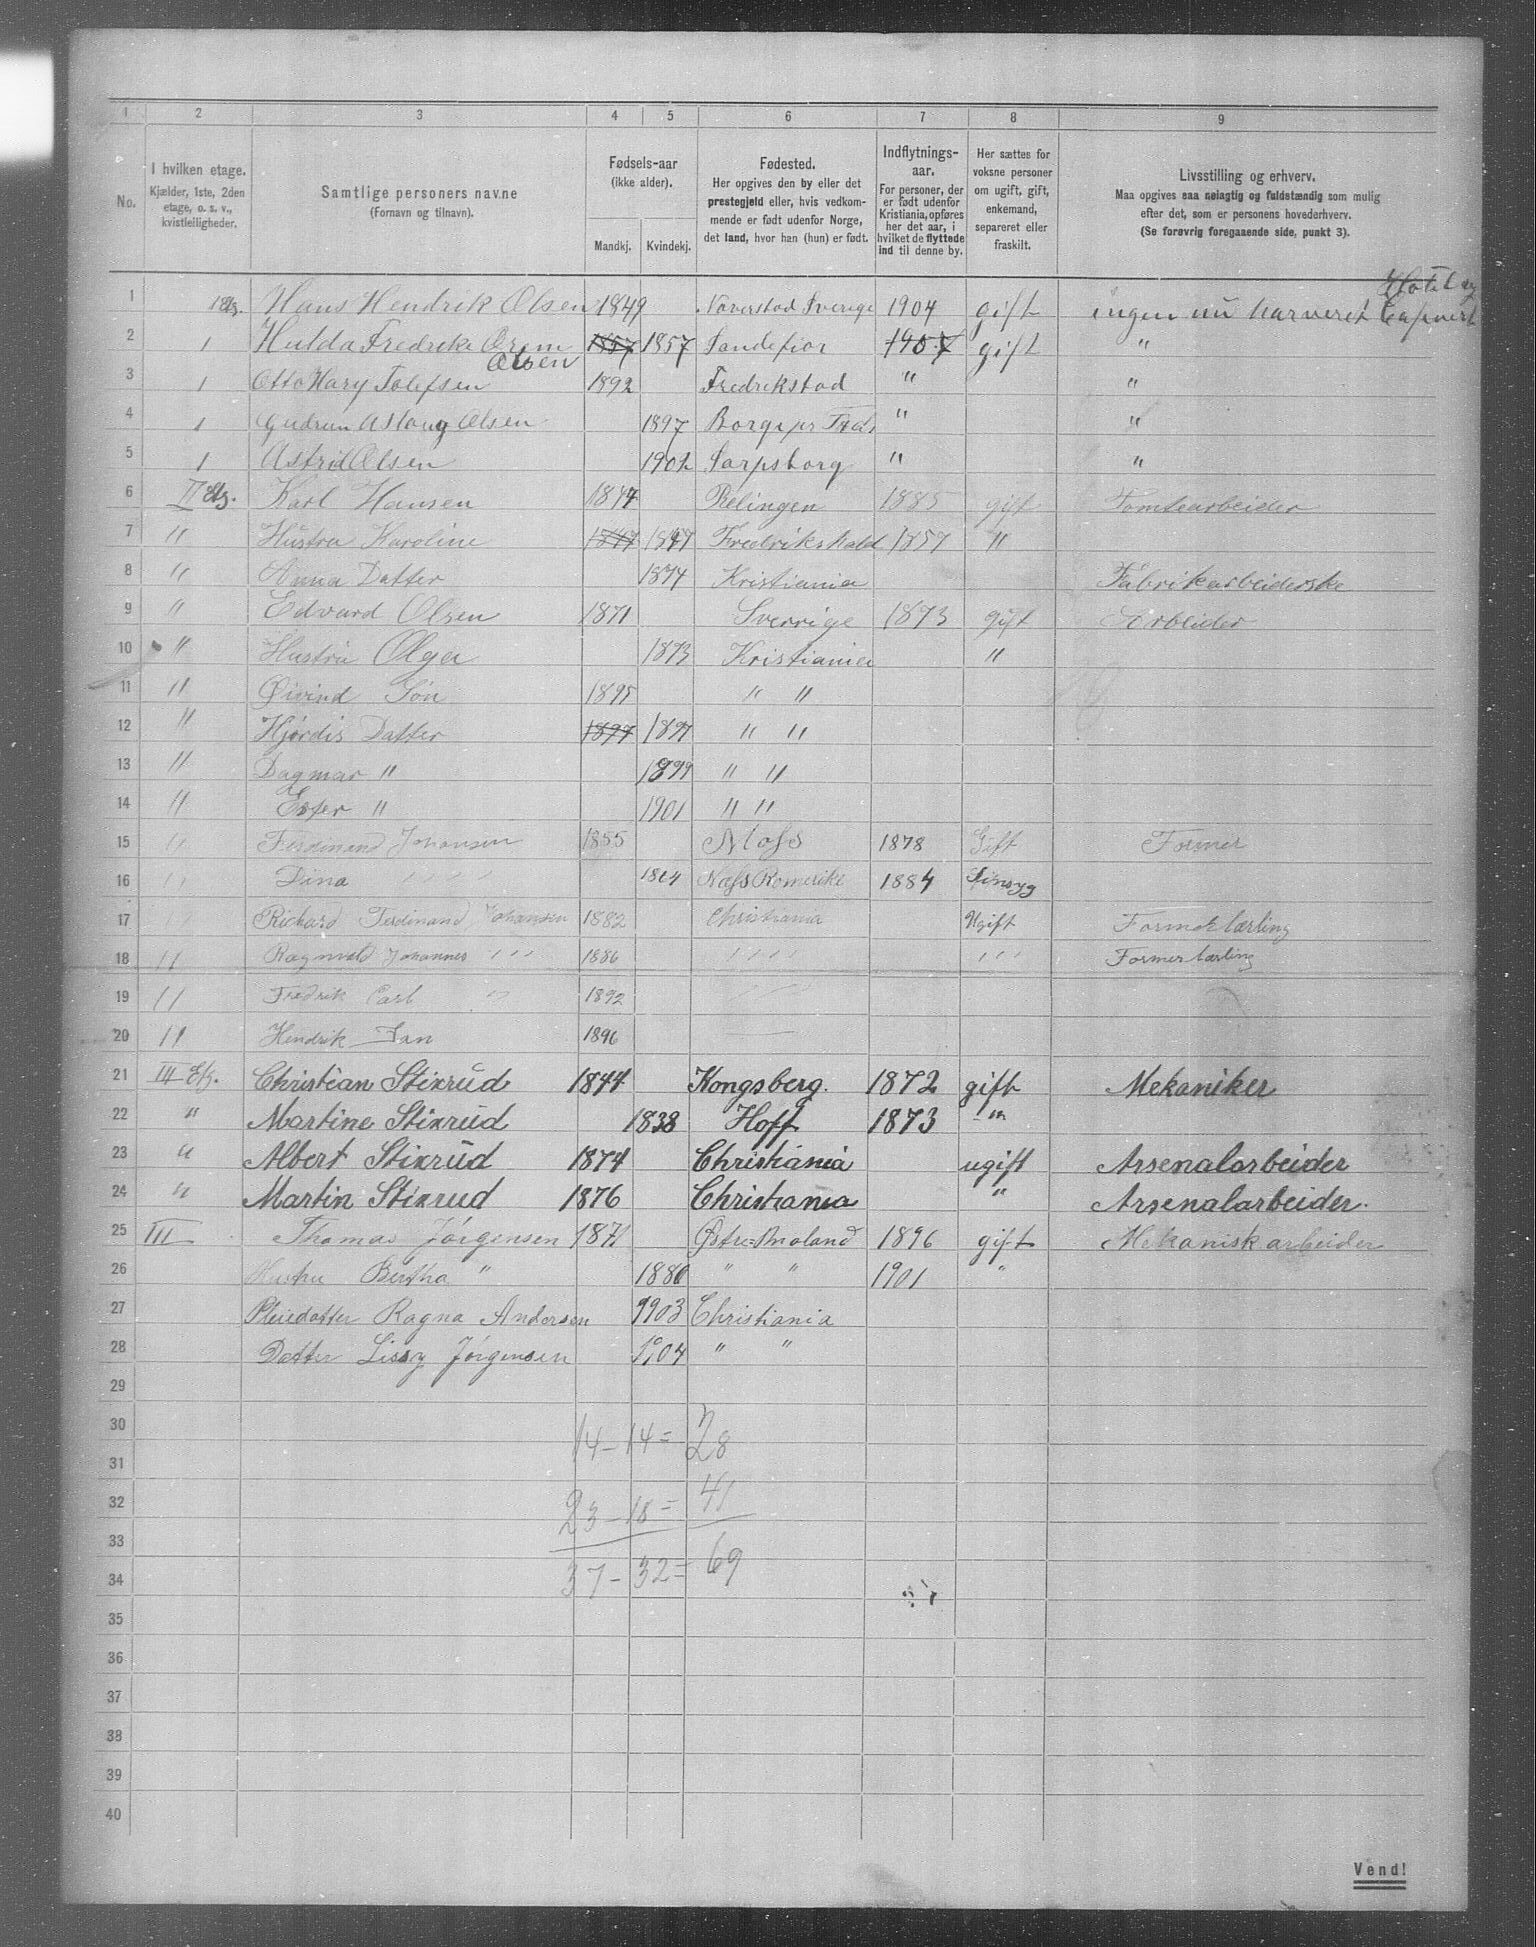 1 2 3 4 5 6 7 8 9
No.
I hvilken etage.
Kjælder, 1ste, 2den
etage, o. s. v.,
kvistleiligheder.
Samtlige personers navne
(Fornavn og tilnavn).
Fødsels-aar
(ikke alder).
Mandkj. Kvindekj.
Fødested.
Her opgives den by eller det
prestegjeld eller, hvis vedkom-
mende er født udenfor Norge,
det land, hvor han (hun) er født.
Indflytnings-
aar.
For personer, der
er født udenfor
Kristiania, opføres
her det aar, i
hvilket de flyttede
ind til denne by.
Her sættes for
voksne personer
om ugift, gift,
enkemand,
separeret eller
fraskilt.
Livsstilling og erhverv.
Maa opgives saa nøiagtig og fuldstændig som mulig
efter det, som er personens hovederhverv.
(Se forøvrig foregaaende side, punkt 3).
1 1 Etg. Hans Hendrik Olsen 1849 Sverige 1904 gift ingen nu harveret Hotel og
2 1 Hulda Fredreke Olsen 1857 1857 Sandefior 1907 gift "
3 1 Otto Hary Tolefsen 1892 Fredrikstad " "
4 1 Gudrun Aslaug Olsen 1897 Borge pr " "
5 1 Astrid Olsen 1902 Sarpsborg " "
6 II Etg. Karl Hansen 1847 Relingen 1885 gift Tomtearbeider
7 " Hustru Karoline 1847 1847 Fredrikshald 1857 "
8 " Anna Datter 1874 Kristiania Fabrikarbeiderske
9 " Edvard Olsen 1871 Sverrige 1873 gift Arbeider
10 " Hustru Olga 1873 Kristiania "
11 " Øivind Søn 1895 " "
12 " Hjørdis Datter 1897 1897 " "
13 " Dagmar " 1899 " "
14 " Ester " 1901 " "
15 " Ferdinand Johansen 1855 Moss 1878 Gift Former
16 " Dina " " 1864 Næss Romerike 1884 Sinsyg
17 " Richard Ferdinand Johansen 1882 Christiania Ugift Formerlærling
18 " Ragnvald Johannes " 1886 " " Formerlærling
19 " Fredrik Carl " 1892 "
20 " Hendrik Dan 1896
21 III Etg. Christian Stixrud 1844 Kongsberg. 1872 gift Mekaniker
22 " Martine Stixrud 1838 Hoff 1873 "
23 " Albert Stixrud 1874 Christiania ugift Arsenalarbeider
24 " Martin Stixrud 1876 Christiania " Arsenalarbeider.
25 III Thomas Jørgensen 1871 Østre=Moland 1896 gift Mekanisk arbeider
26 Hustru Bertha " 1880 " " 1901 "
27 Pleiedatter Ragna Andersen 1903 Christiania
28 Datter Lissy Jørgensen 1904 " "
29
30 14 - 14 = 28
31
32 23 - 18 = 41
33
34 37 - 32 = 69
35
36
37
38
39
40
Vend!